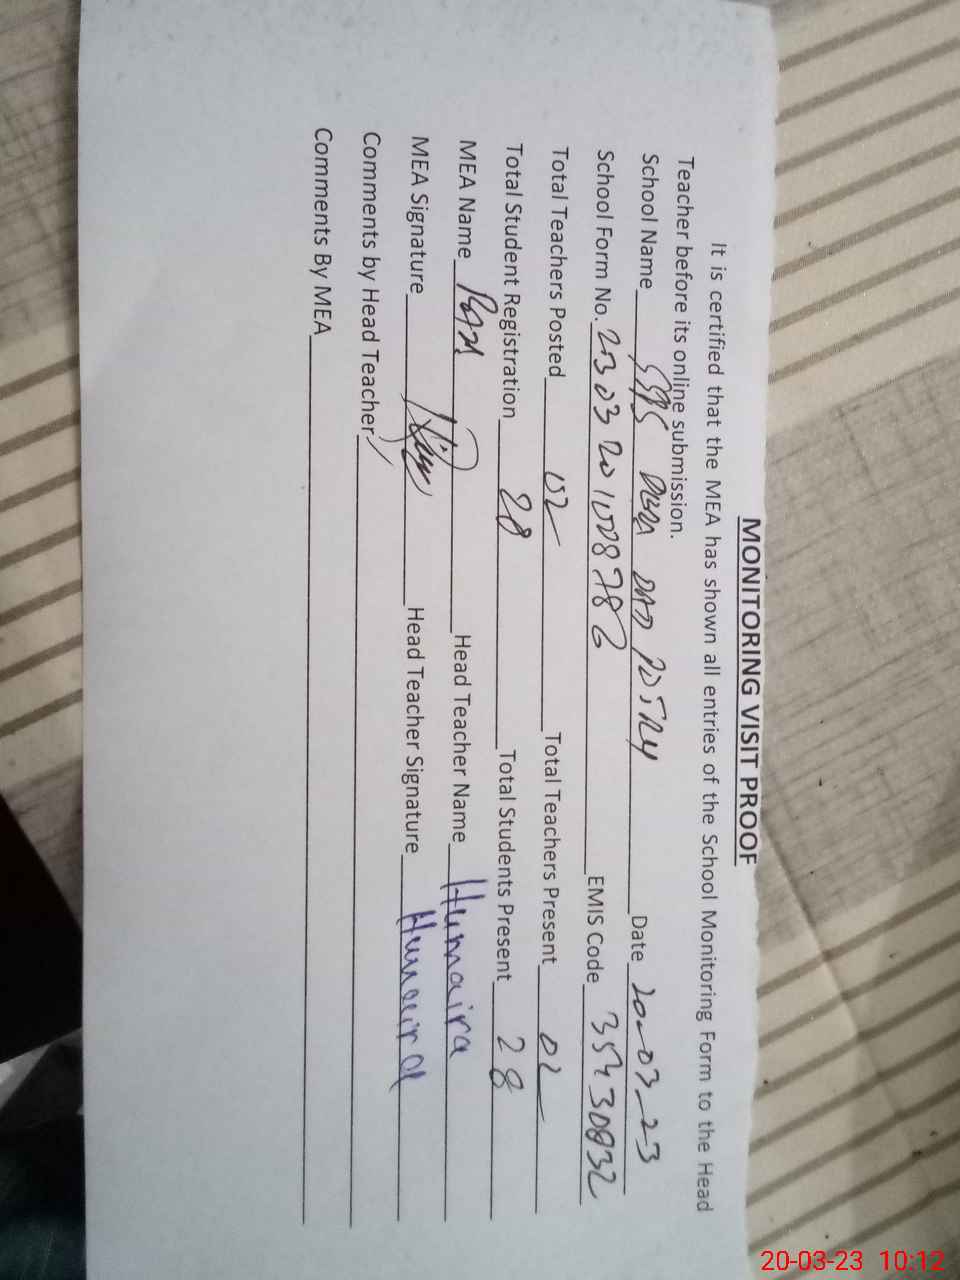 MONITORING VISIT PROOF
It is certified that the MEA has shown all entries of the School Monitoring Form to the Head
Teacher before its online submission.
School Name Date 20-03-23
School Form No. 230320100878 EMIS Code 35430832
Total Teachers Posted 02 Total Teachers Present 02
Total Student Registration 28 Total Students Present 28
MEA Name Head Teacher Name Humaira
MEA Signature Head Teacher Signature Humaira
Comments by Head Teacher
Comments By MEA
20-03-23 10:12